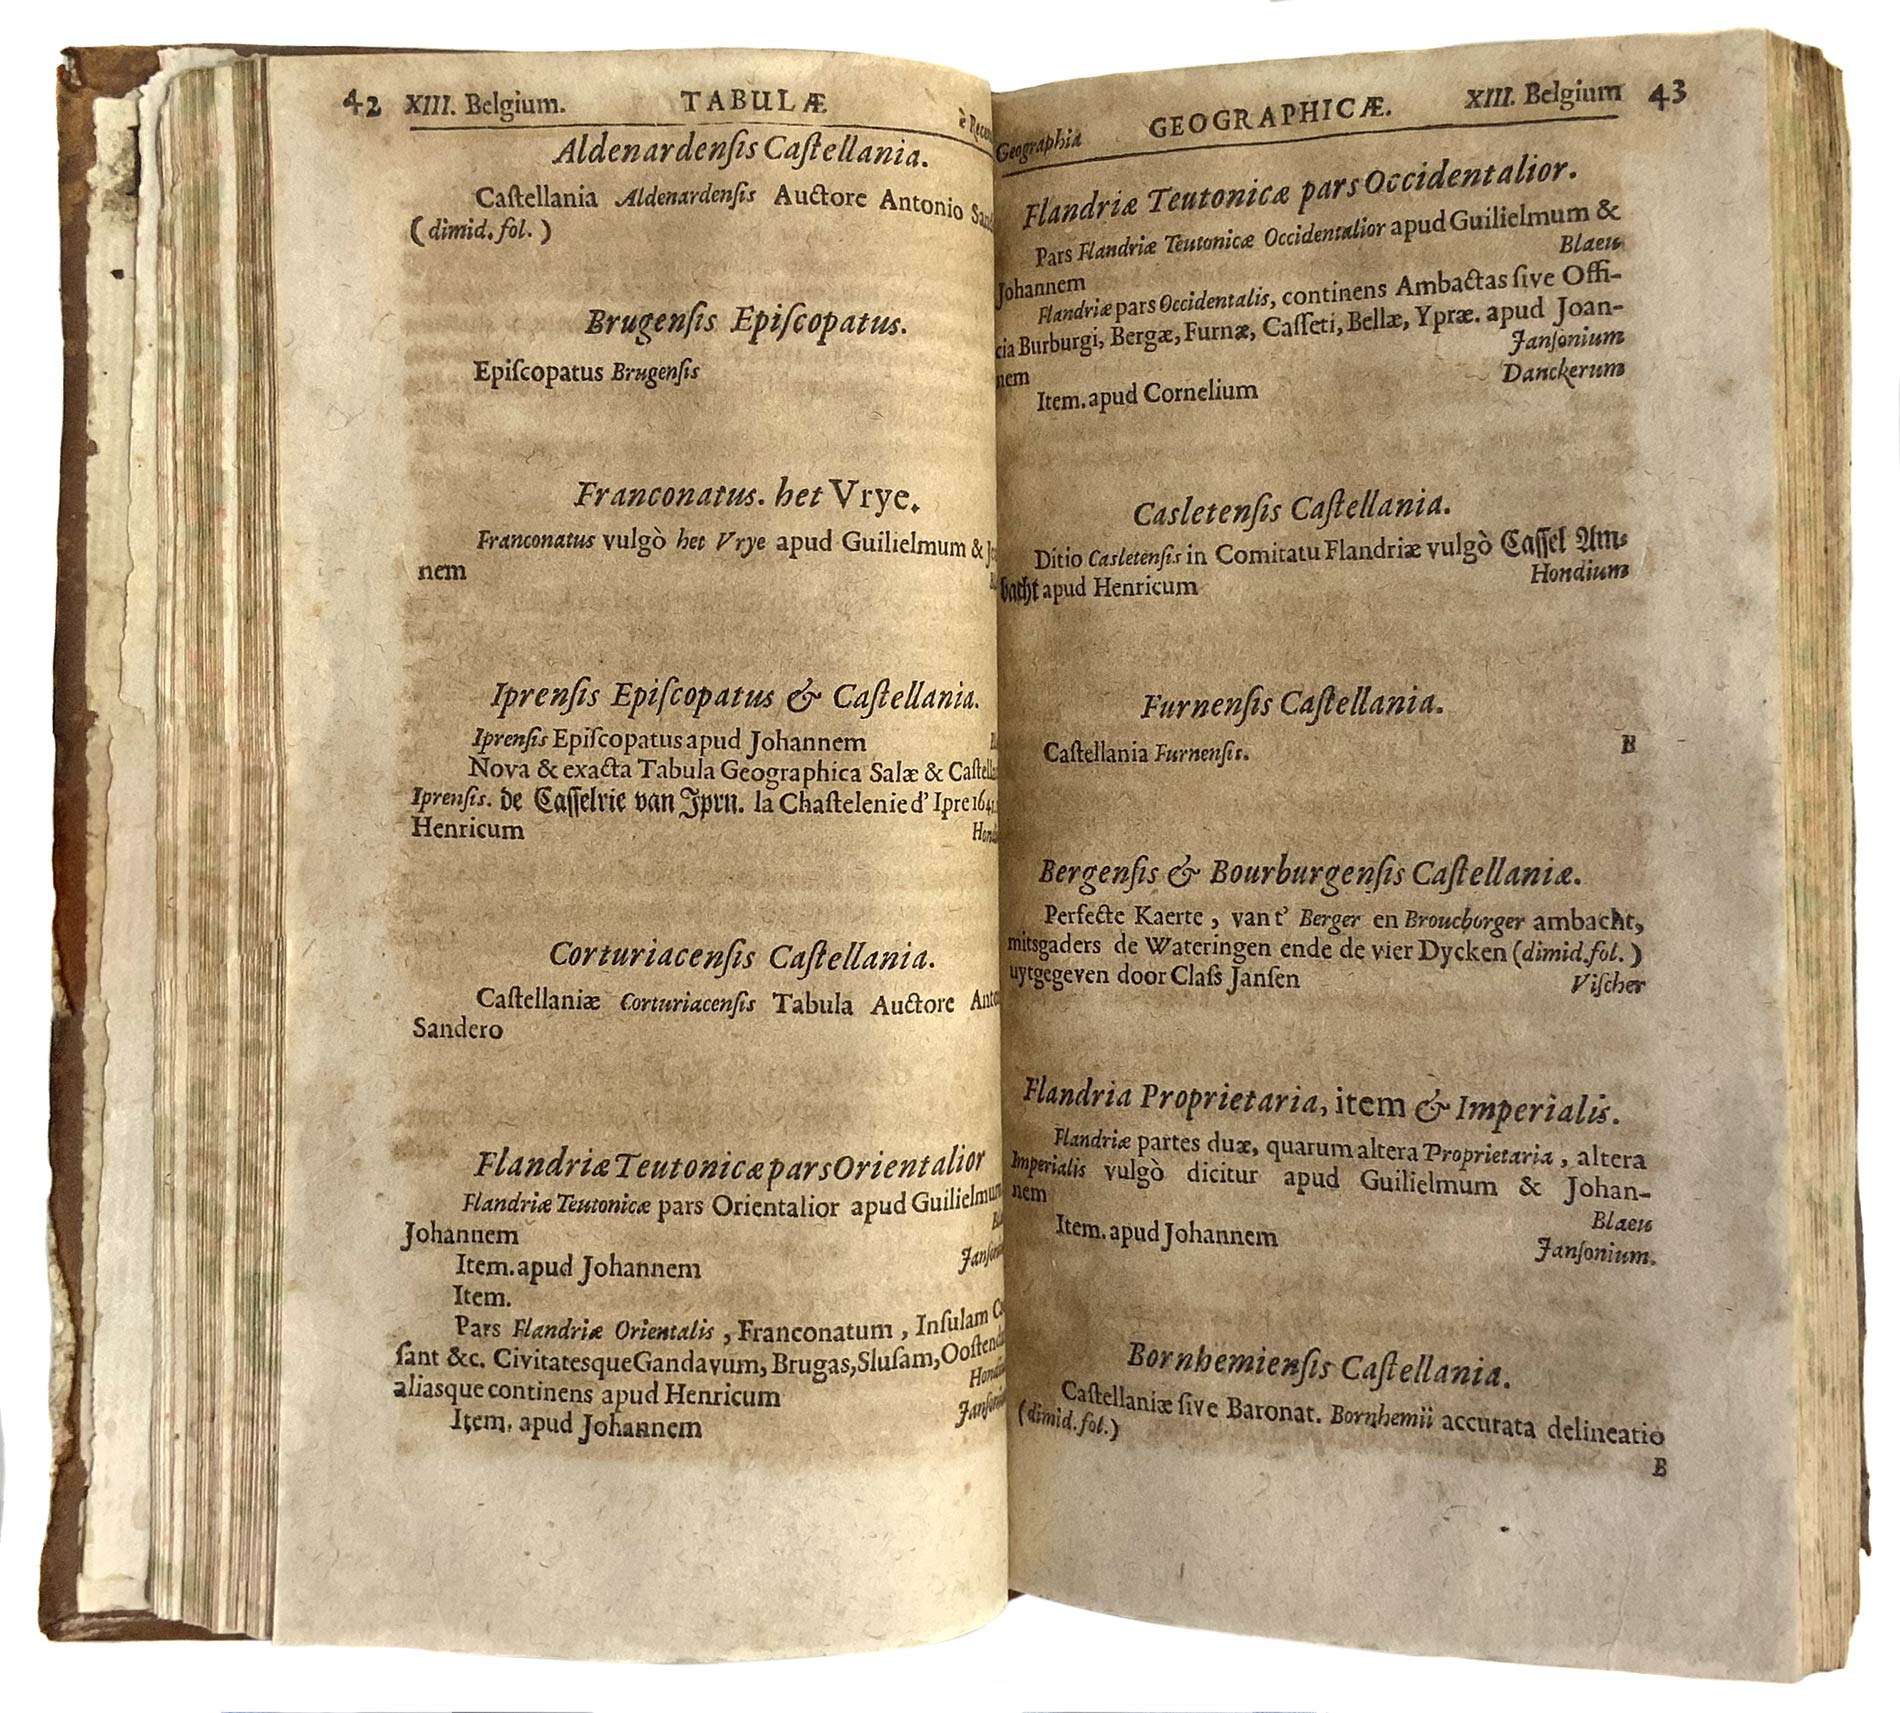 42 XIII. Belgium. TABULÆ è
Aldenardenſis Caſtellania.
Caſtellania Aldenardenſis Auctore Antonio
(dimid. fol.)
Brugenſis Epiſcopatus.
Epiſcopatus Brugenſis
Franconatus. het Vrye.
Franconatus vulgò het Vrye apud Guilielmum &
nem
Iprenſis Epiſcopatus & Caſtellania.
Iprenſis Epiſcopatus apud Johannem
Nova & exacta Tabula Geographica Salæ &
Iprenſis. de Caſſelrie van Iprn. la Chaſtelenie d' Ipre
Henricum
Corturiacenſis Caſtellania.
Caſtellaniæ Corturiacenſis Tabula Auctore
Sandero
Flandriæ Teutonicæ pars Orientalior
Flandriæ Teutonicæ pars Orientalior apud
Johannem
Item. apud Johannem
Item.
Pars Flandriæ Orientalis, Franconatum, Inſulam
ſant &c. Civitatesque Gandavum, Brugas, Sluſam,
aliasque continens apud Henricum
Item. apud Johannem
Geographia GEOGRAPHICÆ. XIII. Belgium 43
Flandriæ Teutonicæ pars Occidentalior.
Pars Flandriæ Teutonicæ Occidentalior apud Guilielmum &
Johannem Blaeu
Flandriæ pars Occidentalis, continens Ambactas ſive Offi-
cia Burburgi, Bergæ, Furnæ, Caſſeti, Bellæ, Ypræ. apud Joan-
nem Janſonium
Item. apud Cornelium Danckerum
Casletenſis Caſtellania.
Ditio Casletenſis in Comitatu Flandriæ vulgò Caſſel Am-
bacht apud Henricum Hondium
Furnenſis Caſtellania.
Caſtellania Furnenſis. B
Bergenſis & Bourburgenſis Caſtellaniæ.
Perfecte Kaerte, van t' Berger en Broucborger ambacht,
mitsgaders de Wateringen ende de vier Dycken (dimid. fol.)
uytgegeven door Claſs Janſen Viſcher
Flandria Proprietaria, item & Imperialis.
Flandriæ partes duæ, quarum altera Proprietaria, altera
Imperialis vulgò dicitur apud Guilielmum & Johan-
nem Blaeu
Item. apud Johannem Janſonium.
Bornhemienſis Caſtellania.
Caſtellaniæ ſive Baronat. Bornhemii accurata delineatio
(dimid. fol.)
B